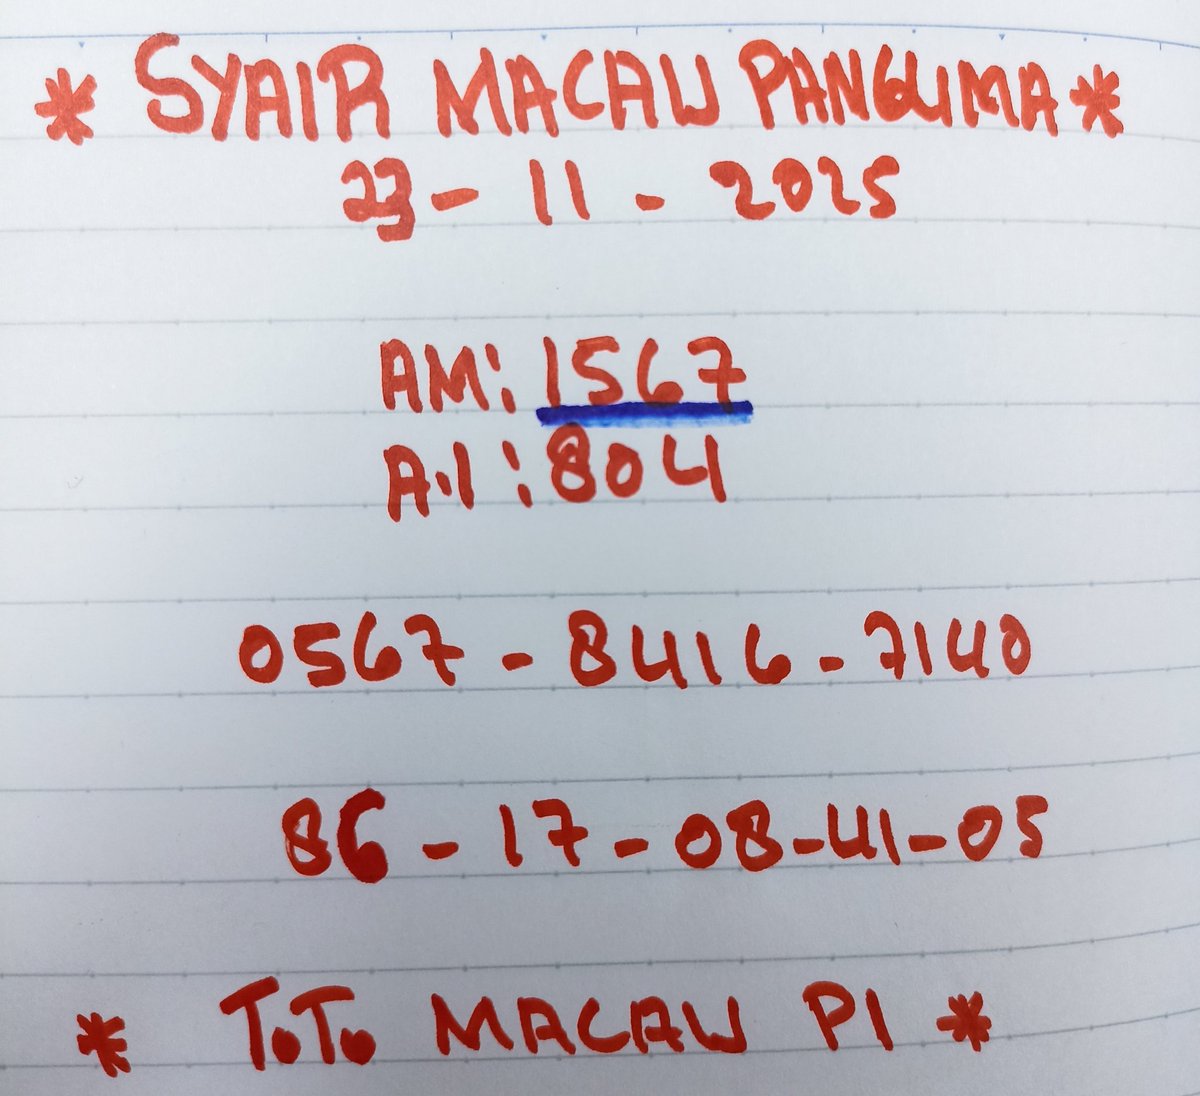 * SYAIR MACAU PANGLIMA *
23 - 11 - 2025
AM : 1567
A.I : 804
0567 - 8416 - 7140
86 - 17 - 08 - 41 - 05
* ToTo MACAU P1 *